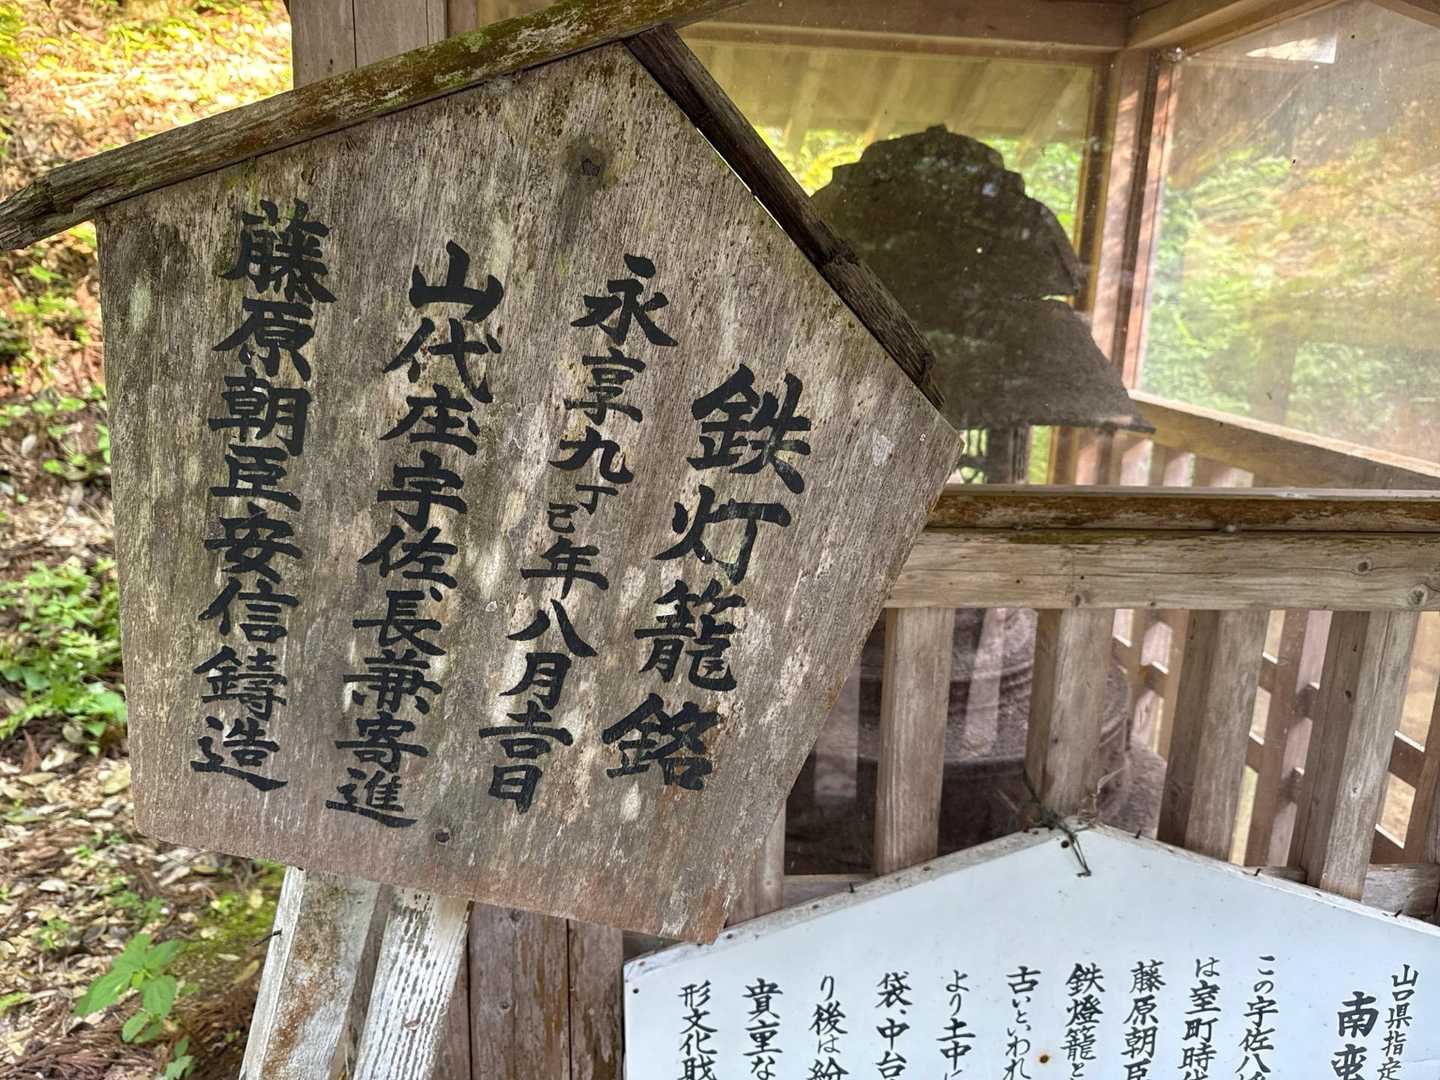 鉄灯籠銘
永享九丁己年八月吉日
山代庄宇佐、長兼寄進
藤原朝臣安信鋳造
山口県指定
南蛮
この宇佐八
は室町時代
藤原朝臣
鉄燈籠と
古いといわれ
より土中に
袋、中台
り後は紛
貴重な
形文化財